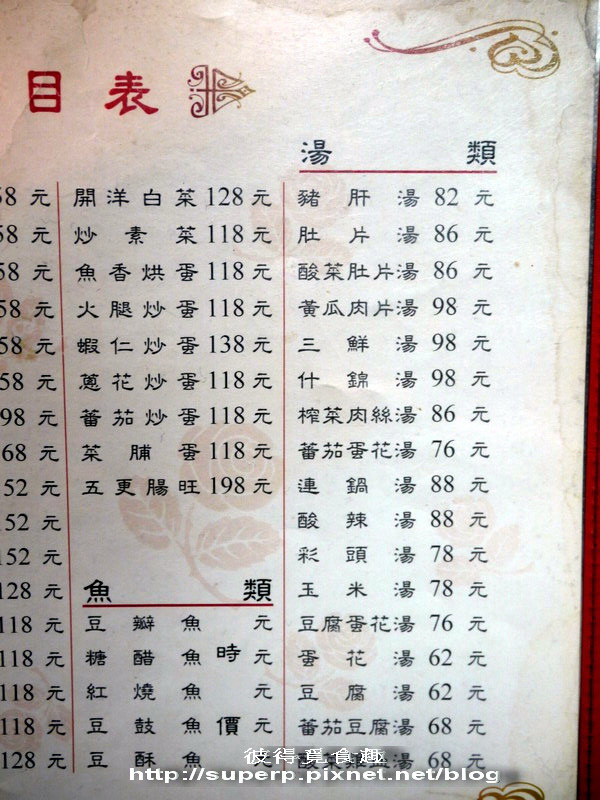 目表
58 元
58 元
58 元
58 元
58 元
58 元
98 元
68 元
152 元
152 元
152 元
128 元
118 元
118 元
118 元
118 元
128 元
開洋白菜 128 元
炒素菜 118 元
魚香烘蛋 118 元
火腿炒蛋 118 元
蝦仁炒蛋 138 元
蔥花炒蛋 118 元
蕃茄炒蛋 118 元
菜脯蛋 118 元
五更腸旺 198 元
魚類
豆瓣魚 元
糖醋魚 時 元
紅燒魚 元
豆鼓魚 價 元
豆酥魚 元
湯類
豬肝湯 82 元
肚片湯 86 元
酸菜肚片湯 86 元
黃瓜肉片湯 98 元
三鮮湯 98 元
什錦湯 98 元
榨菜肉絲湯 86 元
蕃茄蛋花湯 76 元
連鍋湯 88 元
酸辣湯 88 元
彩頭湯 78 元
玉米湯 78 元
豆腐蛋花湯 76 元
蛋花湯 62 元
豆腐湯 62 元
蕃茄豆腐湯 68 元
酸菜 湯 68 元
彼得覓食趣
http://superp.pixnet.net/blog